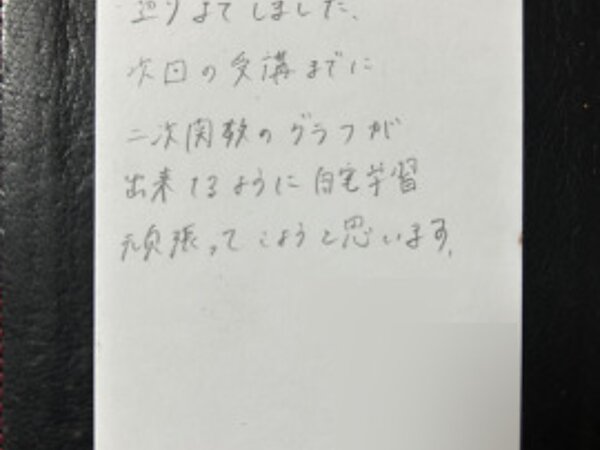 しました、
次回の受講までに
二次関数のグラフが
出来るように自宅学習
頑張ってこようと思います。